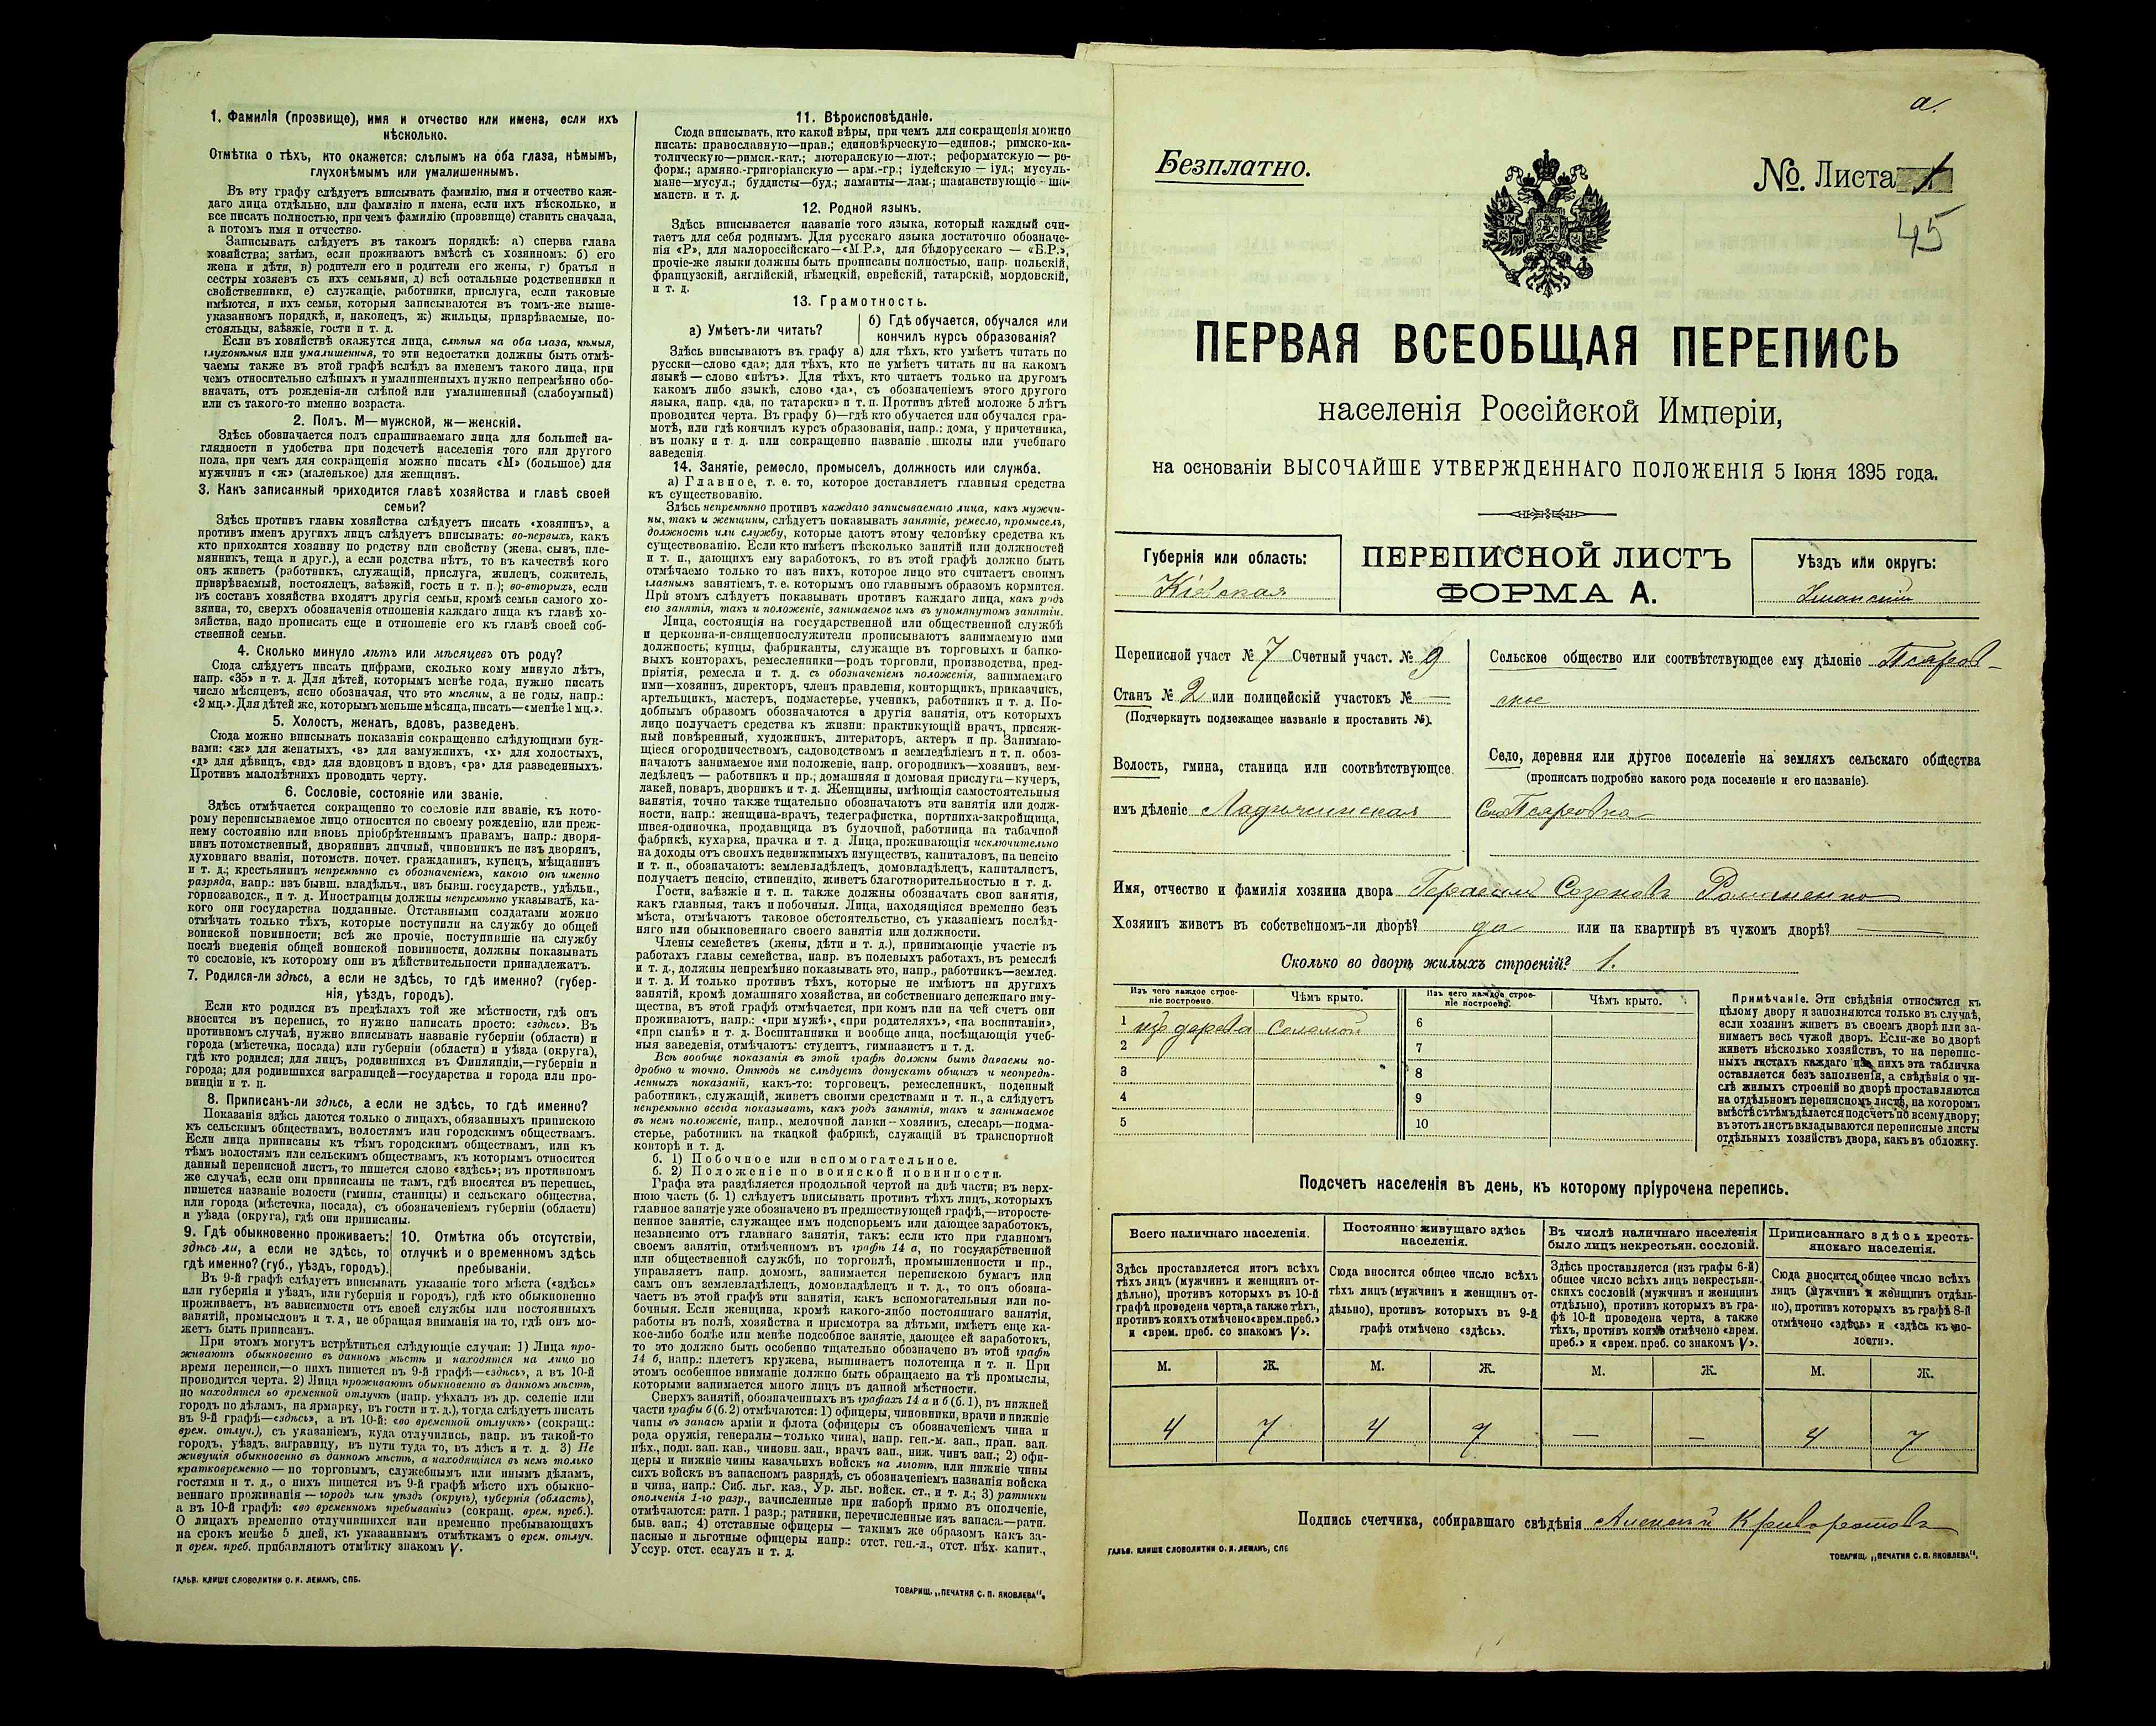 1. Фамилія (прозвище), имя и отчество или имена, если ихъ
нѣсколько.
Отмѣтка о тѣхъ, кто окажется: слѣпымъ на оба глаза, нѣмымъ,
глухонѣмымъ или умалишеннымъ.
Въ эту графу слѣдуетъ вписывать фамилію, имя и отчество каж-
даго лица отдѣльно, или фамилію и имена, если ихъ нѣсколько, и
все писать полностью, при чемъ фамилію (прозвище) ставить сначала,
а потомъ имя и отчество.
Записывать слѣдуетъ въ такомъ порядкѣ: а) сперва глава
хозяйства; затѣмъ, если проживаютъ вмѣстѣ съ хозяиномъ: б) его
жена и дѣти, в) родители его и родители его жены, г) братья и
сестры хозяевъ съ ихъ семьями, д) всѣ остальные родственники и
свойственники, е) служащіе, работники, прислуга, если таковые
имѣются, и ихъ семьи, которыя записываются въ томъ-же выше-
указанномъ порядкѣ, и, наконецъ, ж) жильцы, призрѣваемые, по-
стояльцы, заѣзжіе, гости и т. д.
Если въ хозяйствѣ окажутся лица, слѣпыя на оба глаза, нѣмыя,
глухонѣмыя или умалишенныя, то эти недостатки должны быть отмѣ-
чаемы также въ этой графѣ вслѣдъ за именемъ такого лица, при
чемъ относительно слѣпыхъ и умалишенныхъ нужно непремѣнно обо-
значать, отъ рожденія-ли слѣпой или умалишенный (слабоумный)
или съ такого-то именно возраста.
2. Полъ. М—мужской, ж—женскій.
Здѣсь обозначается полъ спрашиваемаго лица для большей на-
глядности и удобства при подсчетѣ населенія того или другого
пола, при чемъ для сокращенія можно писать «М» (большое) для
мужчинъ и «ж» (маленькое) для женщинъ.
3. Какъ записанный приходится главѣ хозяйства и главѣ своей
семьи?
Здѣсь противъ главы хозяйства слѣдуетъ писать «хозяинъ», а
противъ именъ другихъ лицъ слѣдуетъ вписывать: во-первыхъ, какъ
кто приходится хозяину по родству или свойству (жена, сынъ, пле-
мянникъ, теща и друг.), а если родства нѣтъ, то въ качествѣ кого
онъ живетъ (работникъ, служащій, прислуга, жилецъ, сожитель,
призрѣваемый, постоялецъ, заѣзжій, гость и т. п.); во-вторыхъ, если
въ составъ хозяйства входятъ другія семьи, кромѣ семьи самого хо-
зяина, то, сверхъ обозначенія отношенія каждаго лица къ главѣ хо-
зяйства, надо прописать еще и отношеніе его къ главѣ своей соб-
ственной семьи.
4. Сколько минуло лѣтъ или мѣсяцевъ отъ роду?
Сюда слѣдуетъ писать цифрами, сколько кому минуло лѣтъ,
напр. «35» и т. д. Для дѣтей, которымъ менѣе года, нужно писать
число мѣсяцевъ, ясно обозначая, что это мѣсяцы, а не годы, напр.:
«2 мц.». Для дѣтей же, которымъ меньше мѣсяца, писать—«менѣе 1 мц.».
5. Холостъ, женатъ, вдовъ, разведенъ.
Сюда можно вписывать показанія сокращенно слѣдующими бук-
вами: «ж» для женатыхъ, «з» для замужнихъ, «х» для холостыхъ,
«д» для дѣвицъ, «вд» для вдовцовъ и вдовъ, «рз» для разведенныхъ.
Противъ малолѣтнихъ проводить черту.
6. Сословіе, состояніе или званіе.
Здѣсь отмѣчается сокращенно то сословіе или званіе, къ кото-
рому переписываемое лицо относится по своему рожденію, или преж-
нему состоянію или вновь пріобрѣтеннымъ правамъ, напр.: дворя-
нинъ потомственный, дворянинъ личный, чиновникъ не изъ дворянъ,
духовнаго званія, потомств. почет. гражданинъ, купецъ, мѣщанинъ
и т. д.; крестьянинъ непремѣнно съ обозначеніемъ, какого онъ именно
разряда, напр.: изъ бывш. владѣльч., изъ бывш. государств., удѣльн.,
горнозаводск., и т. д. Иностранцы должны непремѣнно указывать, ка-
кого они государства подданные. Отставными солдатами можно
отмѣчать только тѣхъ, которые поступили на службу до общей
воинской повинности; всѣ же прочіе, поступившіе на службу
послѣ введенія общей воинской повинности, должны показывать
то сословіе, къ которому они въ дѣйствительности принадлежатъ.
7. Родился-ли здѣсь, а если не здѣсь, то гдѣ именно? (губер-
нія, уѣздъ, городъ).
Если кто родился въ предѣлахъ той же мѣстности, гдѣ онъ
вносится въ перепись, то нужно написать просто: «здѣсь». Въ
противномъ случаѣ, нужно вписывать названіе губерніи (области) и
города (мѣстечка, посада) или губерніи (области) и уѣзда (округа),
гдѣ кто родился; для лицъ, родившихся въ Финляндіи,—губерніи и
города; для родившихся заграницей—государства и города или про-
винціи и т. п.
8. Приписанъ-ли здѣсь, а если не здѣсь, то гдѣ именно?
Показанія здѣсь даются только о лицахъ, обязанныхъ припискою
къ сельскимъ обществамъ, волостямъ или городскимъ обществамъ.
Если лица приписаны къ тѣмъ городскимъ обществамъ, или къ
тѣмъ волостямъ или сельскимъ обществамъ, къ которымъ относится
данный переписной листъ, то пишется слово «здѣсь»; въ противномъ
же случаѣ, если они приписаны не тамъ, гдѣ вносятся въ перепись,
пишется названіе волости (гмины, станицы) и сельскаго общества,
или города (мѣстечка, посада), съ обозначеніемъ губерніи (области)
и уѣзда (округа), гдѣ они приписаны.
9. Гдѣ обыкновенно проживаетъ:
здѣсь-ли, а если не здѣсь, то
гдѣ именно? (губ., уѣздъ, городъ).
10. Отмѣтка объ отсутствіи,
отлучкѣ и о временномъ здѣсь
пребываніи.
Въ 9-й графѣ слѣдуетъ вписывать указаніе того мѣста («здѣсь»
или губернія и уѣздъ, или губернія и городъ), гдѣ кто обыкновенно
проживаетъ, въ зависимости отъ своей службы или постоянныхъ
занятій, промысловъ и т. д., не обращая вниманія на то, гдѣ онъ мо-
жетъ быть приписанъ.
При этомъ могутъ встрѣтиться слѣдующіе случаи: 1) Лица про-
живаютъ обыкновенно въ данномъ мѣстѣ и находятся на лицо во
время переписи,—о нихъ пишется въ 9-й графѣ—«здѣсь», а въ 10-й
проводится черта. 2) Лица проживаютъ обыкновенно въ данномъ мѣстѣ,
но находятся во временной отлучкѣ (напр. уѣхалъ въ др. селеніе или
городъ по дѣламъ, на ярмарку, въ гости и т. д.), тогда слѣдуетъ писать
въ 9-й графѣ—«здѣсь», а въ 10-й: «во временной отлучкѣ» (сокращ.:
врем. отлуч.), съ указаніемъ, куда отлучились, напр. въ такой-то
городъ, уѣздъ, заграницу, въ пути туда то, въ лѣсъ и т. д. 3) Не
живущія обыкновенно въ данномъ мѣстѣ, а находящіяся въ немъ только
кратковременно — по торговымъ, служебнымъ или инымъ дѣламъ,
гостями и т. д., о нихъ пишется въ 9-й графѣ мѣсто ихъ обыкно-
веннаго проживанія — городъ или уѣздъ (округъ), губернія (область),
а въ 10-й графѣ: «во временномъ пребываніи» (сокращ. врем. преб.).
О лицахъ временно отлучившихся или временно пребывающихъ
на срокъ менѣе 5 дней, къ указаннымъ отмѣткамъ о врем. отлуч.
и врем. преб. прибавляютъ отмѣтку знакомъ V.
ГАЛЬВ. КЛИШЕ СЛОВОЛИТНИ О. И. ЛЕМАНЪ, СПБ.
11. Вѣроисповѣданіе.
Сюда вписывать, кто какой вѣры, при чемъ для сокращенія можно
писать: православную—прав.; единовѣрческую—единов.; римско-ка-
толическую—римск.-кат.; лютеранскую—лют.; реформатскую — ре-
форм.; армяно-григоріанскую — арм.-гр.; іудейскую — іуд.; мусуль-
мане—мусул.; буддисты—буд.; ламаиты—лам.; шаманствующіе — ша-
манств. и т. д.
12. Родной языкъ.
Здѣсь вписывается названіе того языка, который каждый счи-
таетъ для себя роднымъ. Для русскаго языка достаточно обозначе-
нія «Р», для малороссійскаго—«М.Р.», для бѣлорусскаго — «Б.Р.»,
прочіе-же языки должны быть прописаны полностью, напр. польскій,
французскій, англійскій, нѣмецкій, еврейскій, татарскій, мордовскій,
и т. д.
13. Грамотность.
а) Умѣетъ-ли читать?
б) Гдѣ обучается, обучался или
кончилъ курсъ образованія?
Здѣсь вписываютъ въ графу а) для тѣхъ, кто умѣетъ читать по
русски—слово «да»; для тѣхъ, кто не умѣетъ читать ни на какомъ
языкѣ — слово «нѣтъ». Для тѣхъ, кто читаетъ только на другомъ
какомъ либо языкѣ, слово «да», съ обозначеніемъ этого другого
языка, напр. «да, по татарски» и т. п. Противъ дѣтей моложе 5 лѣтъ
проводится черта. Въ графу б)—гдѣ кто обучается или обучался гра-
мотѣ, или гдѣ кончилъ курсъ образованія, напр.: дома, у причетника,
въ полку и т. д. или сокращенно названіе школы или учебнаго
заведенія
14. Занятіе, ремесло, промыселъ, должность или служба.
а) Главное, т. е. то, которое доставляетъ главныя средства
къ существованію.
Здѣсь непремѣнно противъ каждаго записываемаго лица, какъ мужчи-
ны, такъ и женщины, слѣдуетъ показывать занятіе, ремесло, промыселъ,
должность или службу, которые даютъ этому человѣку средства къ
существованію. Если кто имѣетъ нѣсколько занятій или должностей
и т. п., дающихъ ему заработокъ, то въ этой графѣ должно быть
отмѣчаемо только то изъ нихъ, которое лицо это считаетъ своимъ
главнымъ занятіемъ, т. е. которымъ оно главнымъ образомъ кормится.
При этомъ слѣдуетъ показывать противъ каждаго лица, какъ родъ
его занятія, такъ и положеніе, занимаемое имъ въ упомянутомъ занятіи.
Лица, состоящія на государственной или общественной службѣ
и церковно-и-священнослужители прописываютъ занимаемую ими
должность; купцы, фабриканты, служащіе въ торговыхъ и банко-
выхъ конторахъ, ремесленники—родъ торговли, производства, пред-
пріятія, ремесла и т. д. съ обозначеніемъ положенія, занимаемаго
ими—хозяинъ, директоръ, членъ правленія, конторщикъ, приказчикъ,
артельщикъ, мастеръ, подмастерье, ученикъ, работникъ и т. д. По-
добнымъ образомъ обозначаются и другія занятія, отъ которыхъ
лицо получаетъ средства къ жизни: практикующій врачъ, присяж-
ный повѣренный, художникъ, литераторъ, актеръ и пр. Занимаю-
щіеся огородничествомъ, садоводствомъ и земледѣліемъ и т. п. обоз-
начаютъ занимаемое ими положеніе, напр. огородникъ—хозяинъ, зем-
ледѣлецъ — работникъ и пр.; домашняя и домовая прислуга—кучеръ,
лакей, поваръ, дворникъ и т. д. Женщины, имѣющія самостоятельныя
занятія, точно также тщательно обозначаютъ эти занятія или долж-
ности, напр.: женщина-врачъ, телеграфистка, портниха-закройщица,
швея-одиночка, продавщица въ булочной, работница на табачной
фабрикѣ, кухарка, прачка и т. д. Лица, проживающія исключительно
на доходы отъ своихъ недвижимыхъ имуществъ, капиталовъ, на пенсію
и т. п., обозначаютъ: землевладѣлецъ, домовладѣлецъ, капиталистъ,
получаетъ пенсію, стипендію, живетъ благотворительностью и т. д.
Гости, заѣзжіе и т. п. также должны обозначать свои занятія,
какъ главныя, такъ и побочныя. Лица, находящіяся временно безъ
мѣста, отмѣчаютъ таковое обстоятельство, съ указаніемъ послѣд-
няго или обыкновеннаго своего занятія или должности.
Члены семействъ (жены, дѣти и т. д.), принимающіе участіе въ
работахъ главы семейства, напр. въ полевыхъ работахъ, въ ремеслѣ
и т. д., должны непремѣнно показывать это, напр., работникъ—землед.
и т. д. И только противъ тѣхъ, которые не имѣютъ ни другихъ
занятій, кромѣ домашняго хозяйства, ни собственнаго денежнаго иму-
щества, въ этой графѣ отмѣчается, при комъ или на чей счетъ они
проживаютъ, напр.: «при мужѣ», «при родителяхъ», «на воспитаніи»,
«при сынѣ» и т. д. Воспитанники и вообще лица, посѣщающія учеб-
ныя заведенія, отмѣчаютъ: студентъ, гимназистъ и т. д.
Всѣ вообще показанія въ этой графѣ должны быть даваемы по-
дробно и точно. Отнюдь не слѣдуетъ допускать общихъ и неопредѣ-
ленныхъ показаній, какъ-то: торговецъ, ремесленникъ, поденный
работникъ, служащій, живетъ своими средствами и т. п., а слѣдуетъ
непремѣнно всегда показывать, какъ родъ занятія, такъ и занимаемое
въ немъ положеніе, напр., мелочной лавки—хозяинъ, слесарь—подма-
стерье, работникъ на ткацкой фабрикѣ, служащій въ транспортной
конторѣ и т. д.
б. 1) Побочное или вспомогательное.
б. 2) Положеніе по воинской повинности.
Графа эта раздѣляется продольной чертой на двѣ части; въ верх-
нюю часть (б. 1) слѣдуетъ вписывать противъ тѣхъ лицъ, которыхъ
главное занятіе уже обозначено въ предшествующей графѣ,—второсте-
пенное занятіе, служащее имъ подспорьемъ или дающее заработокъ,
независимо отъ главнаго занятія, такъ: если кто при главномъ
своемъ занятіи, отмѣченномъ въ графѣ 14 а, по государственной
или общественной службѣ, по торговлѣ, промышленности и пр.,
управляетъ напр. домомъ, занимается перепискою бумагъ или
самъ онъ землевладѣлецъ, домовладѣлецъ и т. д., то онъ обозна-
чаетъ въ этой графѣ эти занятія, какъ вспомогательныя или по-
бочныя. Если женщина, кромѣ какого-либо постояннаго занятія,
работы въ полѣ, хозяйства и присмотра за дѣтьми, имѣетъ еще ка-
кое-либо болѣе или менѣе подсобное занятіе, дающее ей заработокъ,
то это должно быть особенно тщательно обозначено въ этой графѣ
14 б, напр.: плететъ кружева, вышиваетъ полотенца и т. п. При
этомъ особенное вниманіе должно быть обращаемо на тѣ промыслы,
которыми занимается много лицъ въ данной мѣстности.
Сверхъ занятій, обозначенныхъ въ графахъ 14 а и б (б. 1), въ нижней
части графы б (б. 2) отмѣчаются: 1) офицеры, чиновники, врачи и нижніе
чины въ запасѣ арміи и флота (офицеры съ обозначеніемъ чина и
рода оружія, генералы—только чина), напр. ген.-м. зап., прап. зап.
пѣх., подп. зап. кав., чиновн. зап., врачъ зап., ниж. чинъ зап.; 2) офи-
церы и нижніе чины казачьихъ войскъ на льготѣ, или нижніе чины
сихъ войскъ въ запасномъ разрядѣ, съ обозначеніемъ названія войска
и чина, напр.: Сиб. льг. каз., Ур. льг. войск. ст., и т. д.; 3) ратники
ополченія 1-го разр., зачисленные при наборѣ прямо въ ополченіе,
отмѣчаются: ратн. 1 разр.; ратники, перечисленные изъ запаса—ратн.
быв. зап.; 4) отставные офицеры — такимъ же образомъ какъ за-
пасные и льготные офицеры напр.: отст. ген.-л., отст. пѣх. капит.,
Уссур. отст. есаулъ и т. д.
ТОВАРИЩ. „ПЕЧАТНЯ С. П. ЯКОВЛЕВА“.
а.
Безплатно.
№. Листа 1
45
ПЕРВАЯ ВСЕОБЩАЯ ПЕРЕПИСЬ
населенія Россійской Имперіи,
на основаніи ВЫСОЧАЙШЕ УТВЕРЖДЕННАГО ПОЛОЖЕНІЯ 5 Іюня 1895 года.
Губернія или область:
Кіевская
ПЕРЕПИСНОЙ ЛИСТЪ
ФОРМА А.
Уѣздъ или округъ:
Уманскій
Переписной участ № 7 Счетный участ. № 9
Станъ № 2 или полицейскій участокъ № —
(Подчеркнуть подлежащее названіе и проставить №).
Волость, гмина, станица или соотвѣтствующее
имъ дѣленіе Ладыжинская
Сельское общество или соотвѣтствующее ему дѣленіе Псаров-
ское
Село, деревня или другое поселеніе на земляхъ сельскаго общества
(прописать подробно какого рода поселеніе и его названіе).
Село Псаровка
Имя, отчество и фамилія хозяина двора Герасимъ Созоновъ Романенко
Хозяинъ живетъ въ собственномъ-ли дворѣ? да или на квартирѣ въ чужомъ дворѣ? —
Сколько во дворѣ жилыхъ строеній? 1.
Изъ чего каждое строе-
ніе построено.
Чѣмъ крыто.
Изъ чего каждое строе-
ніе построено.
Чѣмъ крыто.
1 изъ дерева соломой 6
2 7
3 8
4 9
5 10
Примѣчаніе. Эти свѣдѣнія относятся къ
цѣлому двору и заполняются только въ случаѣ,
если хозяинъ живетъ въ своемъ дворѣ или за-
нимаетъ весь чужой дворъ. Если-же во дворѣ
живетъ нѣсколько хозяйствъ, то на перепис-
ныхъ листахъ каждаго изъ нихъ эта табличка
оставляется безъ заполненія, а свѣдѣнія о чи-
слѣ жилыхъ строеній во дворѣ проставляются
на отдѣльномъ переписномъ листѣ, на которомъ
вмѣстѣ съ тѣмъ дѣлается подсчетъ по всему двору;
въ этотъ листъ вкладываются переписные листы
отдѣльныхъ хозяйствъ двора, какъ въ обложку.
Подсчетъ населенія въ день, къ которому пріурочена перепись.
Всего наличнаго населенія.
Здѣсь проставляется итогъ всѣхъ
тѣхъ лицъ (мужчинъ и женщинъ от-
дѣльно), противъ которыхъ въ 10-й
графѣ проведена черта, а также тѣхъ,
противъ коихъ отмѣчено «врем. преб.»
и «врем. преб. со знакомъ V».
Постоянно живущаго здѣсь
населенія.
Сюда вносится общее число всѣхъ
тѣхъ лицъ (мужчинъ и женщинъ от-
дѣльно), противъ которыхъ въ 9-й
графѣ отмѣчено «здѣсь».
Въ числѣ наличнаго населенія
было лицъ некрестьян. сословій.
Здѣсь проставляется (изъ графы 6-й)
общее число всѣхъ лицъ некрестьян-
скихъ сословій (мужчинъ и женщинъ
отдѣльно), противъ которыхъ въ гра-
фѣ 10-й проведена черта, а также
тѣхъ, противъ коихъ отмѣчено «врем.
преб.» и «врем. преб. со знакомъ V».
Приписаннаго здѣсь кресть-
янскаго населенія.
Сюда вносится общее число всѣхъ
лицъ (мужчинъ и женщинъ отдѣль-
но), противъ которыхъ въ графѣ 8-й
отмѣчено «здѣсь» и «здѣсь къ во-
лости».
М. Ж. М. Ж. М. Ж. М. Ж.
4 7 4 7 — — 4 7
Подпись счетчика, собиравшаго свѣдѣнія Алексѣй Криворотовъ
ГАЛЬВ. КЛИШЕ СЛОВОЛИТНИ О. И. ЛЕМАНЪ, СПБ
ТОВАРИЩ. „ПЕЧАТНЯ С. П. ЯКОВЛЕВА“.